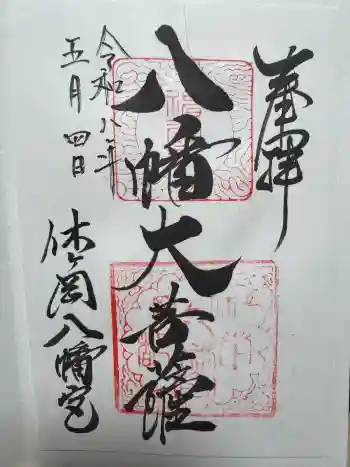 奉拝
八幡大菩薩
令和八年
五月四日
休ヶ岡八幡宮